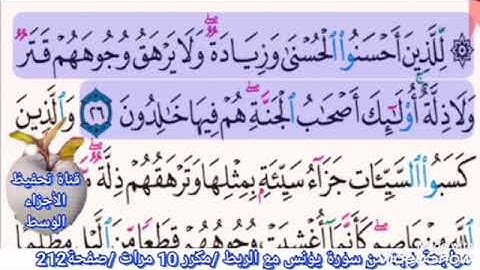 ۞ لِّلَّذِينَ أَحْسَنُوا۟ ٱلْحُسْنَىٰ وَزِيَادَةٌ ۖ وَلَا يَرْهَقُ وُجُوهَهُمْ قَتَرٌ
وَلَا ذِلَّةٌ ۚ أُو۟لَٰٓئِكَ أَصْحَٰبُ ٱلْجَنَّةِ ۖ هُمْ فِيهَا خَٰلِدُونَ ٢٦ وَٱلَّذِينَ
كَسَبُوا۟ ٱلسَّيِّـَٔاتِ جَزَآءُ سَيِّئَةٍۭ بِمِثْلِهَا وَتَرْهَقُهُمْ ذِلَّةٌ ۖ
عَاصِمٍ ۖ كَأَنَّمَآ أُغْشِيَتْ وُجُوهُهُمْ قِطَعًا مِّنَ ٱلَّيْلِ مُظْلِمًا
قناة تحفيظ
الأجزاء
الوسط
من سورة يؤنس مع الربط /مكرر 10 مرات /صفحة212